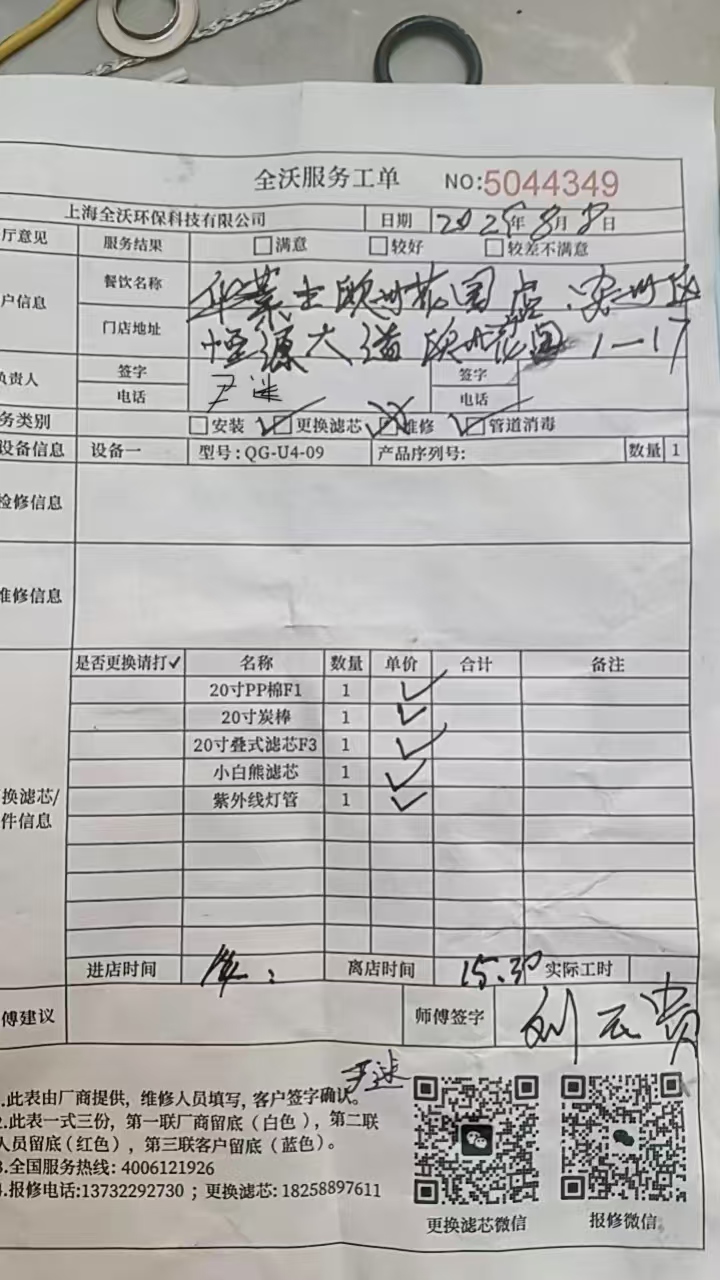 全沃服务工单 NO:5044349
上海全沃环保科技有限公司 日期 2025年8月8日
厅意见 服务结果 □满意 □较好 □较差不满意
户信息 餐饮名称 华莱士欧洲花园店
门店地址 恒源大道欧洲花园1-17
负责人 签字 签字
电话 电话
务类别 □安装 ☑更换滤芯 维修 ☑管道消毒
设备信息 设备一 型号:QG-U4-09 产品序列号: 数量 1
检修信息
维修信息
是否更换请打✓ 名称 数量 单价 合计 备注
20寸PP棉F1 1 ✓
20寸炭棒 1 ✓
20寸叠式滤芯F3 1 ✓
小白熊滤芯 1 ✓
紫外线灯管 1 ✓
换滤芯/
件信息
进店时间 离店时间 15:30 实际工时
傅建议 师傅签字 刘云贵
.此表由厂商提供, 维修人员填写, 客户签字确认。
2.此表一式三份, 第一联厂商留底(白色), 第二联
人员留底(红色), 第三联客户留底(蓝色)。
3.全国服务热线: 4006121926
4.报修电话:13732292730 ; 更换滤芯: 18258897611
更换滤芯微信 报修微信